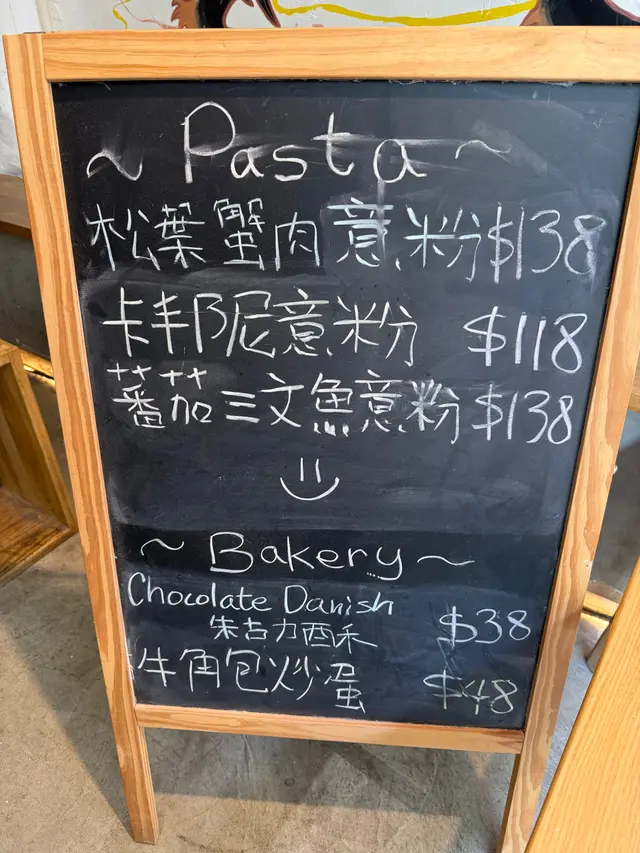 ~ Pasta ~
松葉蟹肉意粉 $138
卡丰阝尼意粉 $118
蕃茄三文魚意粉 $138
~ Bakery ~
Chocolate Danish
朱古力酉禾 $38
牛角包炒蛋 $48